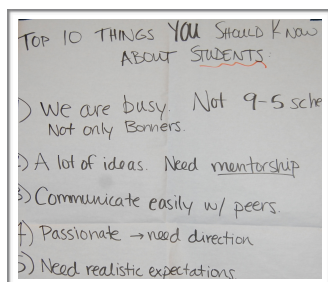 TOP 10 THINGS YOU SHOULD KNOW
ABOUT STUDENTS:
) We are busy. Not 9-5 sche
Not only Bonners.
) A lot of ideas. Need mentorship
3) Communicate easily w/ peers.
4) Passionate → need direction
5) Need realistic expectations